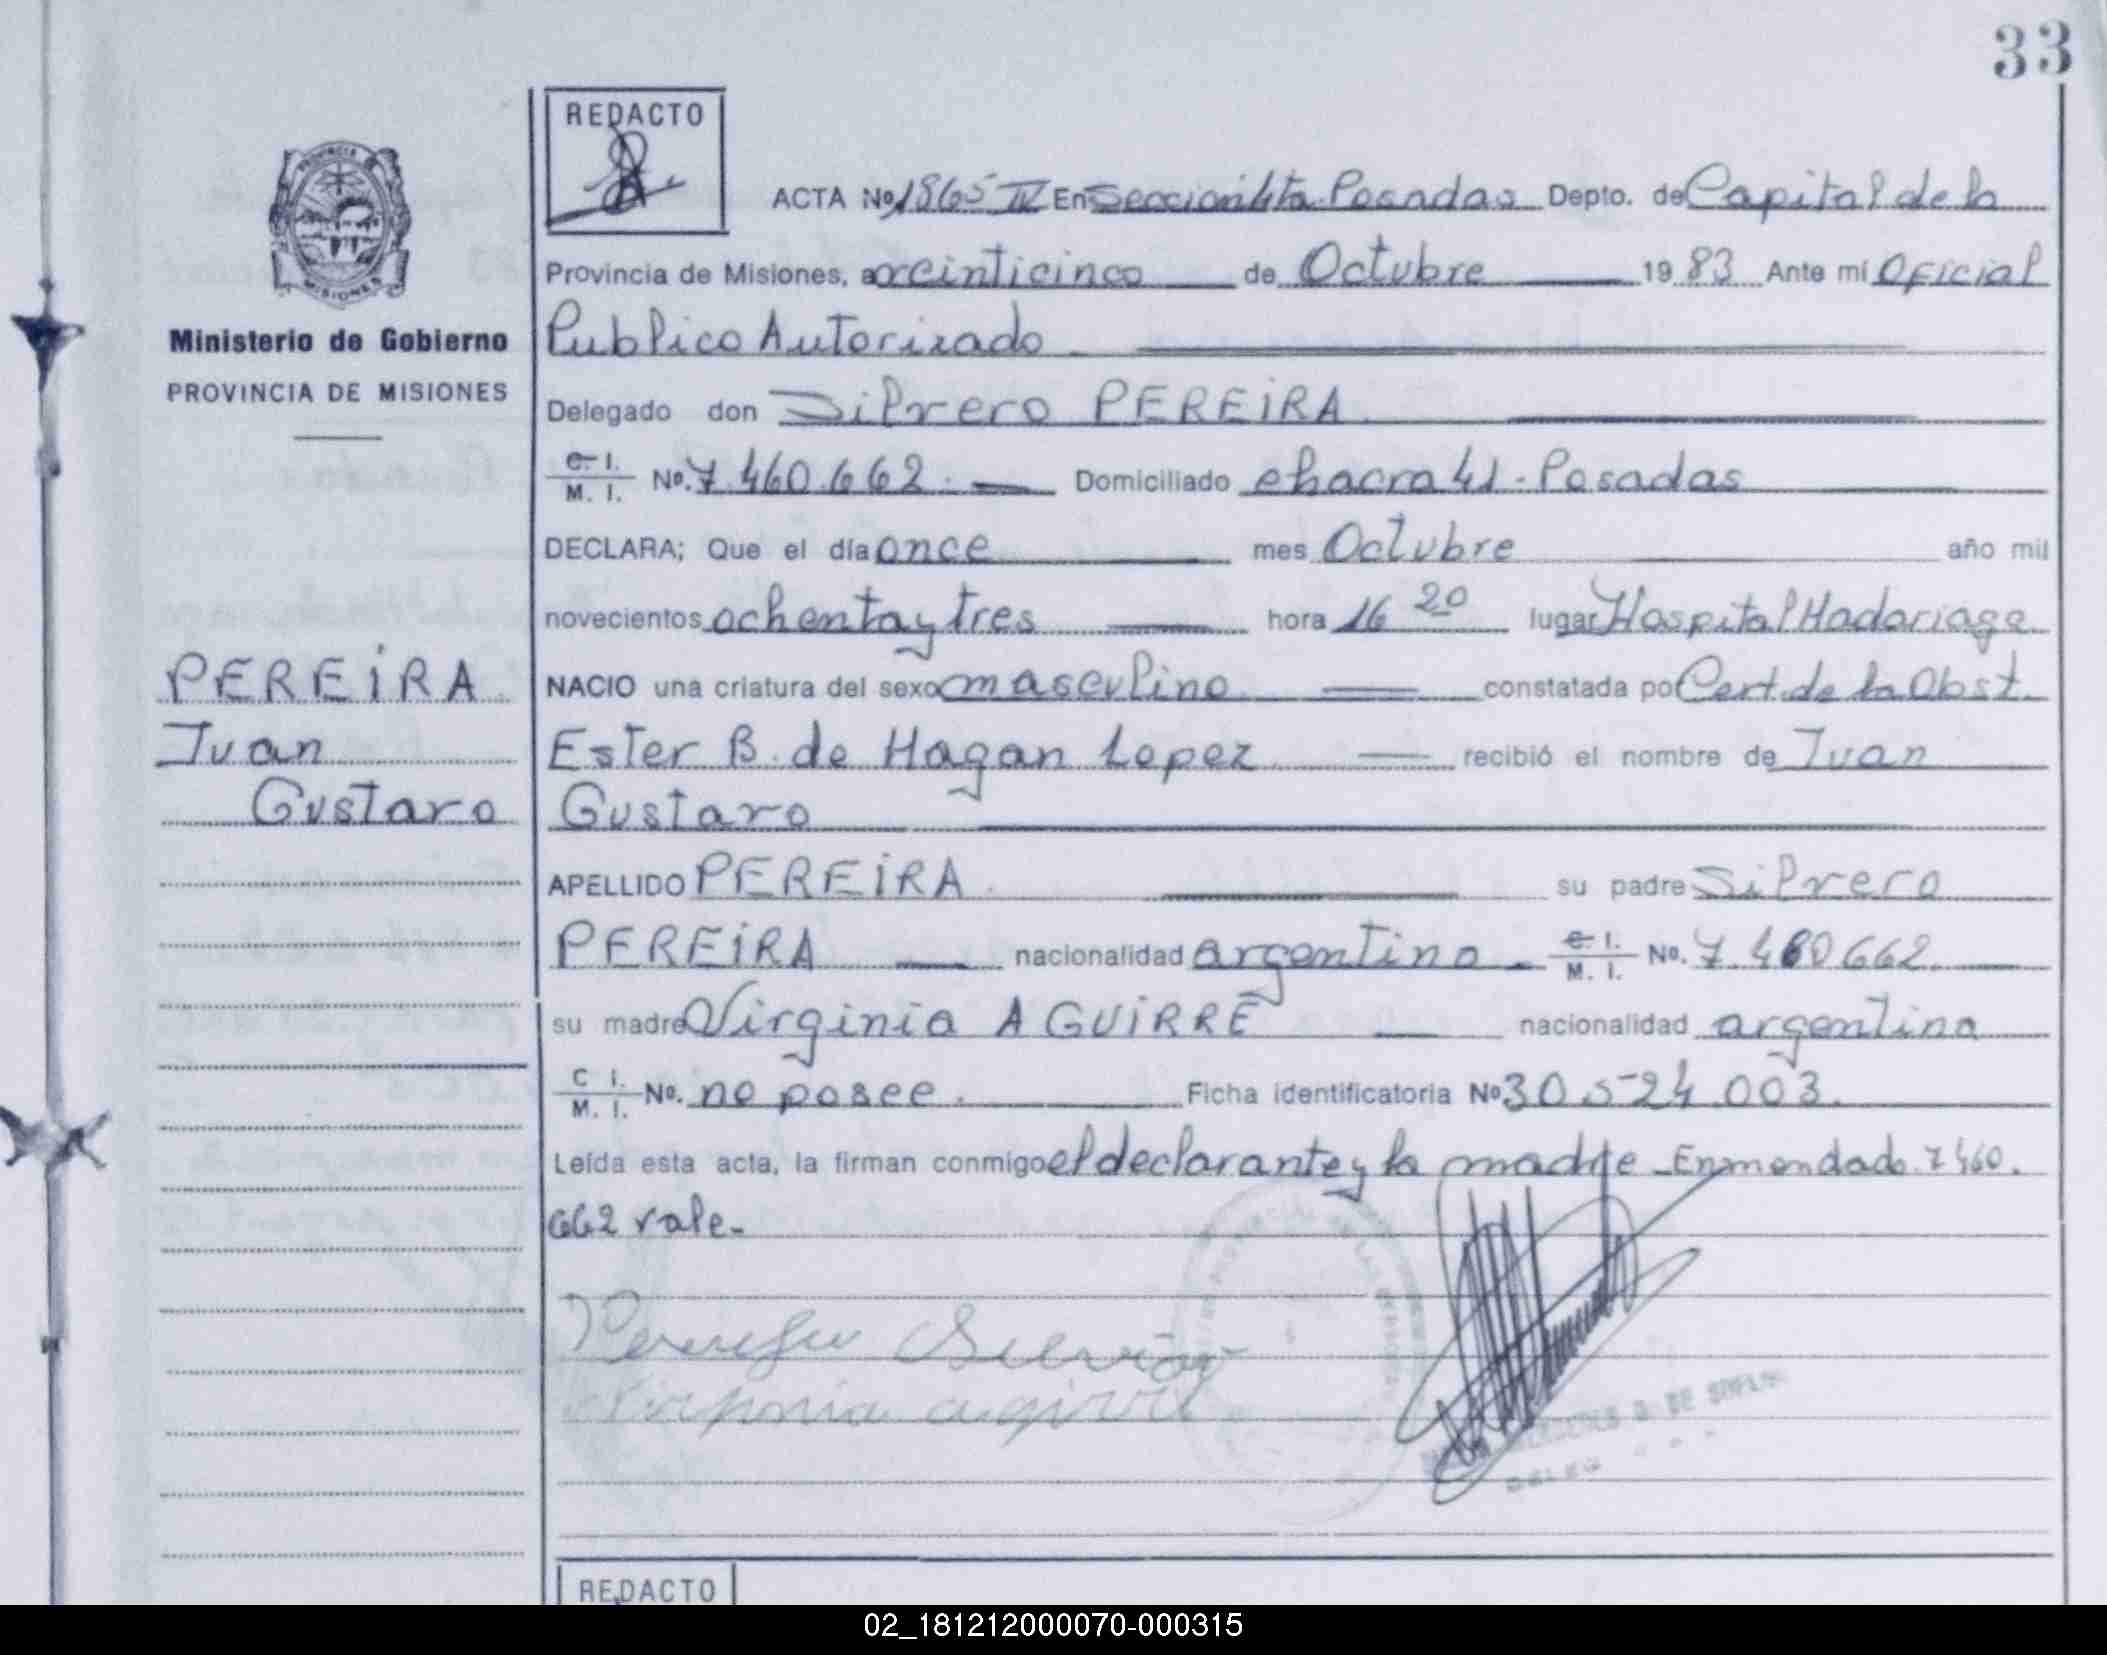 33
REDACTO
PROVINCIA
MISIONES
ACTA Nº 1865 IV En Sección 4ta Posadas Depto. de Capital de la
Provincia de Misiones, a veinticinco de Octubre 19 83 Ante mí Oficial
Ministerio de Gobierno
Publico Autorizado
PROVINCIA DE MISIONES
Delegado don Silvero PEREIRA
C. I. M. I. Nº. 7.460.662. Domiciliado chacra 41 - Posadas
DECLARA; Que el día once mes Octubre año mil
novecientos ochenta y tres hora 16 20 lugar Hospital Madariaga
PEREIRA
NACIO una criatura del sexo masculino constatada po Cert. de la Obst.
Ivan
Ester B. de Hagan Lopez recibió el nombre de Ivan
Gustavo
Gustavo
APELLIDO PEREIRA su padre Silvero
PEREIRA nacionalidad argentino - C. I. M. I. Nº. 7.460662
su madre Virginia AGUIRRE nacionalidad argentina
C I. M. I. Nº. no posee. Ficha identificatoria Nº 30524.003.
Leída esta acta, la firman conmigo el declarante y la madre - Enmendado. 7460.
662 vale-
REDACTO
02_181212000070-000315